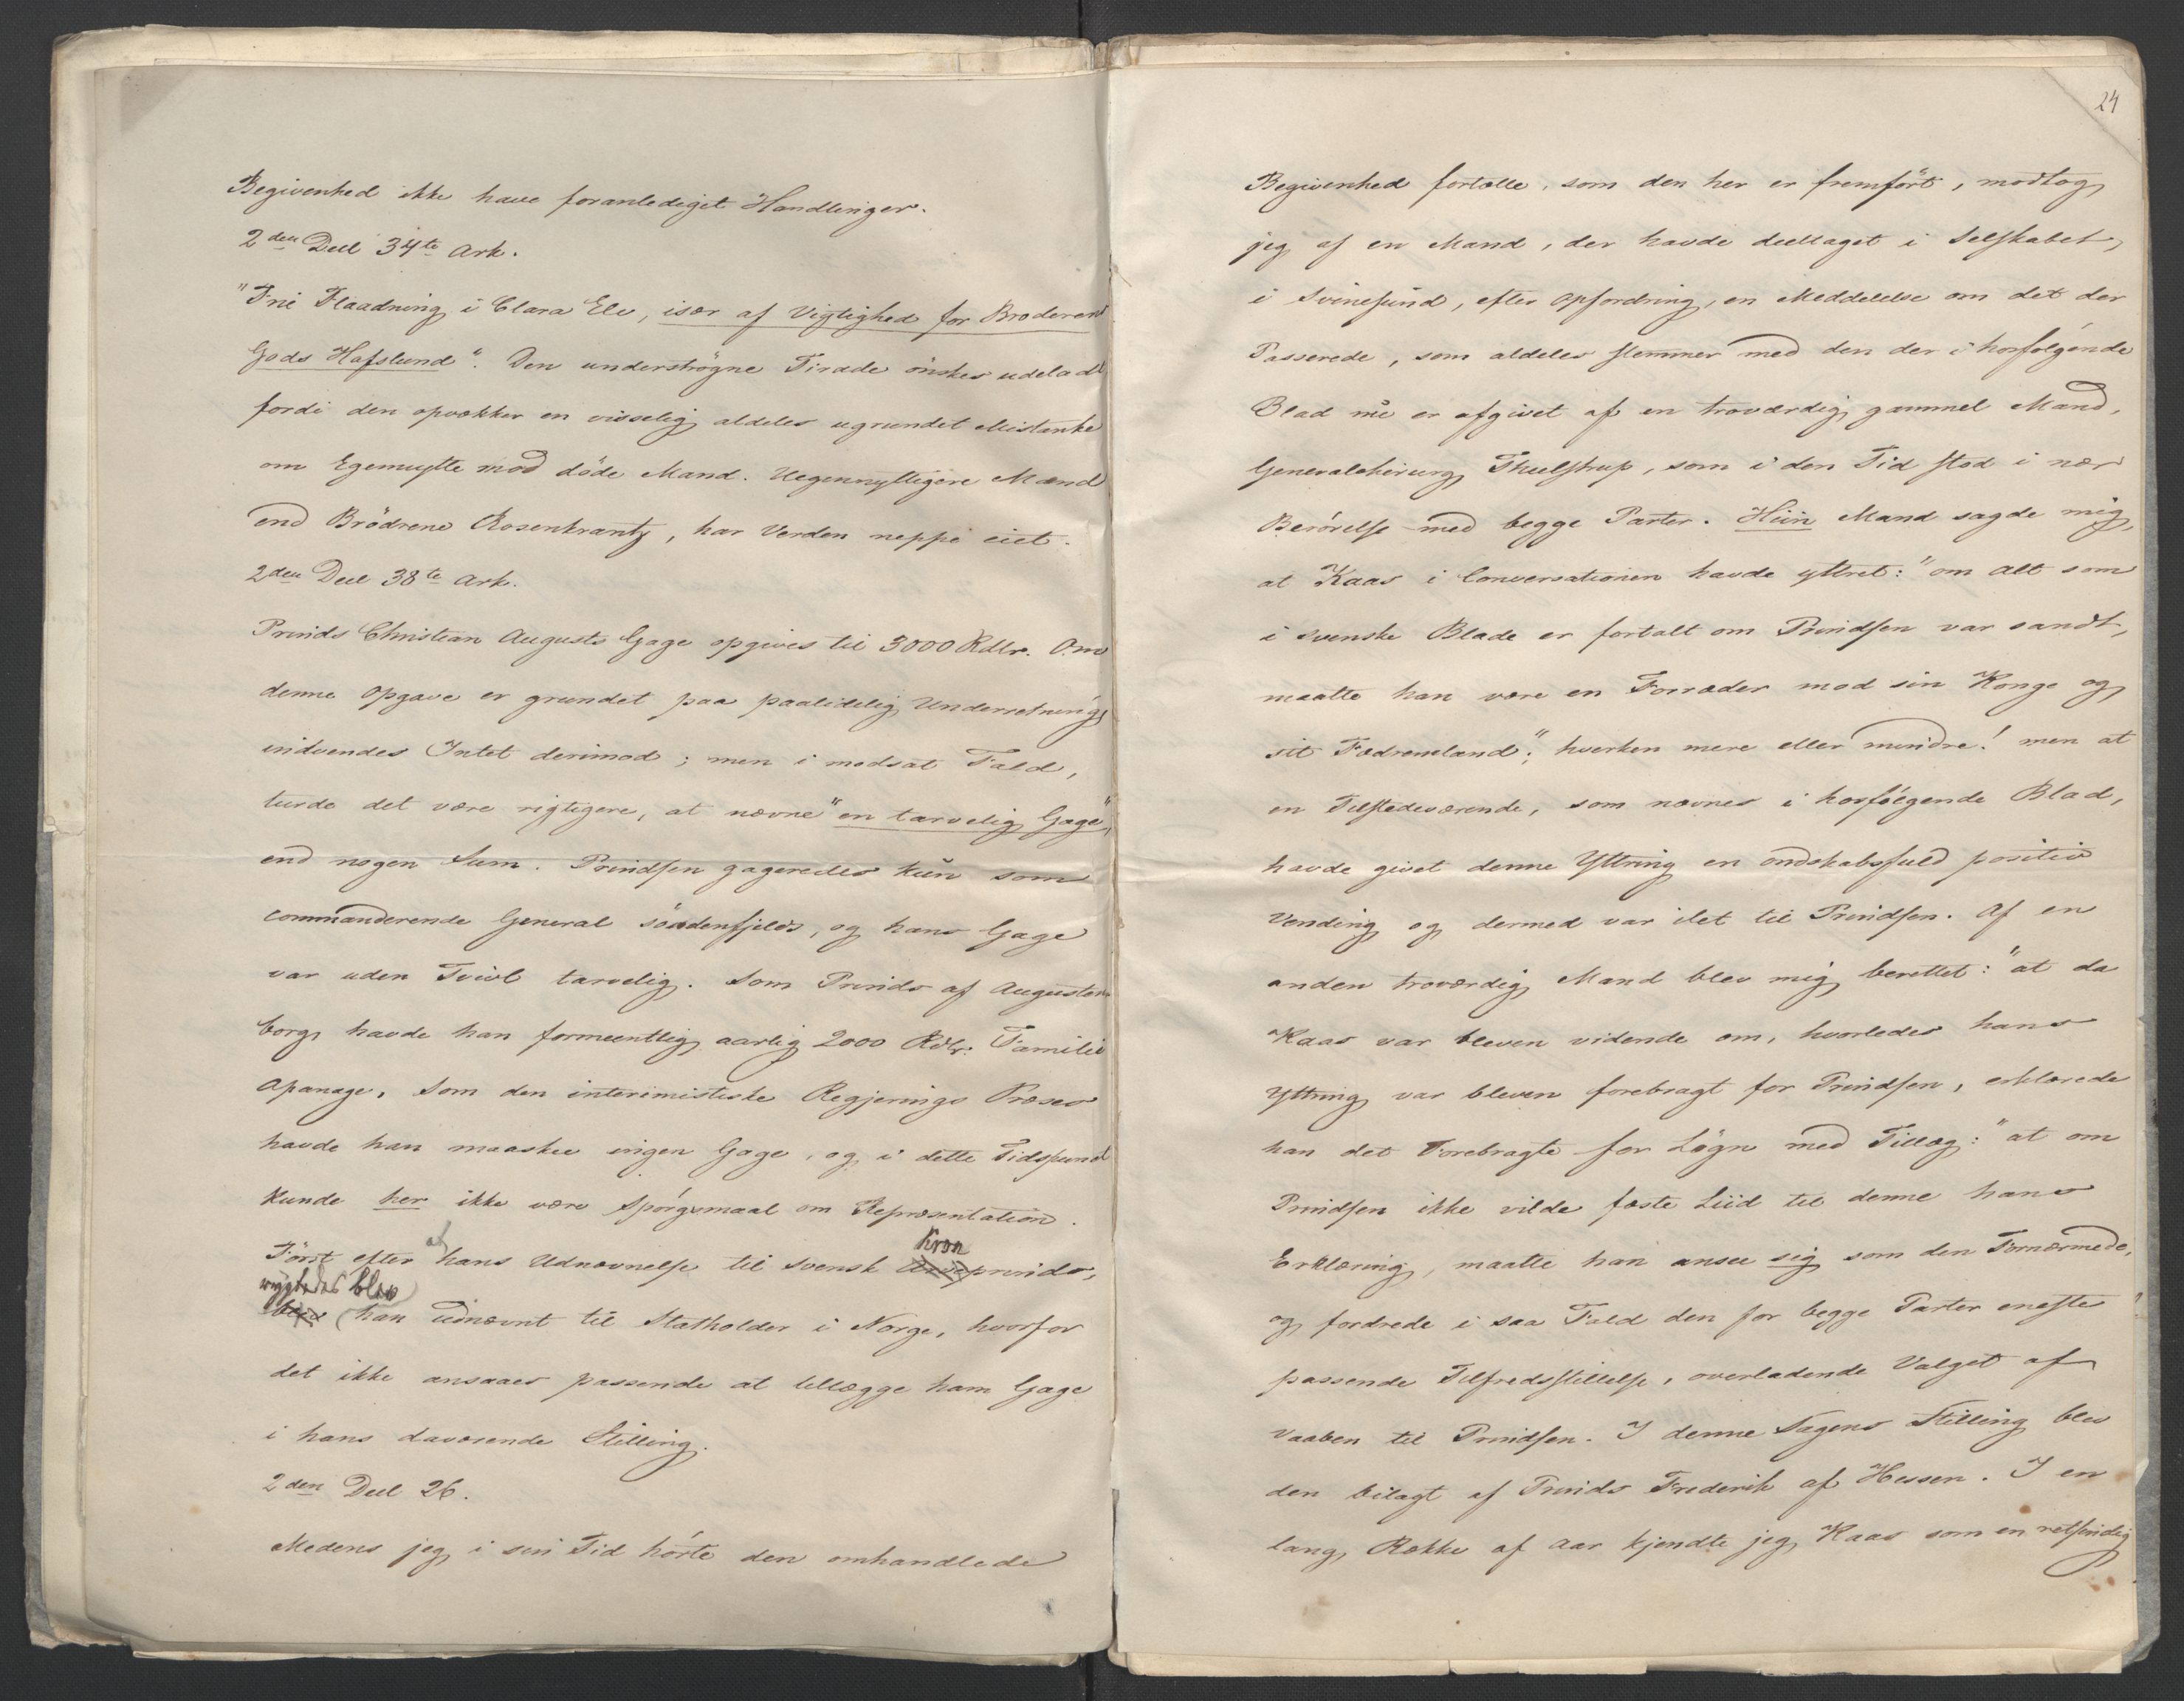 Begivenhed ikke have foranlediget Handlinger.
2den Deel 34te Ark.
"Frie Flaadning i Clara Elv, især af Vigtighed for Broderens
Gods Hafslund". Den underströgne Tirade önskes udeladt
fordi den opvækker en visselig aldeles ugrundet Mistanke
om Egennytte mod döde Mand. Uegennyttigere Mænd
end Brödrene Rosenkrantz, har Verden neppe eiet.
2den Deel 38te Ark.
Prinds Christian Augusts Gage opgives til 3000 Rdlr. Om
denne Opgave er grundet paa paalidelig Underretning,
indvendes Intet derimod; men i modsat Fald,
turde det være rigtigere, at nævne "en tarvelig Gage",
end nogen Sum. Prindsen gageredes kun som
commanderende General söndenfjelds, og hans Gage
var uden Tvivl tarvelig. Som Prinds af Augusten-
borg havde han formeentlig aarlig 2000 Rdlr. Familie
Apanage. Som den interimistiske Regjerings Præses
havde han maaskee ingen Gage, og i dette Tidspunct
kunde her ikke være Spörgsmaal om Repræsentation.
Först efter at hans Udnævnelse til svensk Kronprinds,
rygtedes blev
han udnævnt til Statholder i Norge, hvorfor
det ikke ansaaes passende at tillægge ham Gage
i hans daværende Stilling.
2den Deel 26.
Medens jeg i sin Tid hörte den omhandlede
24
Begivenhed fortælle, som den her er fremfört, modtog
jeg af en Mand, der havde deeltaget i Selskabet,
i Svinesund, efter Opfordring, en Meddelelse om det der
Passerede, som aldeles stemmer med den der i hosfölgende
Blad nu er afgivet af en troværdig gammel Mand,
Generalchirurg Thulstrup, som i den Tid stod i nær
Berörelse med begge Parter. Hiin Mand sagde mig,
at Kaas i Conversationen havde yttret: "om Alt som
i svenske Blade er fortalt om Prindsen var sandt,
maatte han være en Forræder mod sin Konge og
sit Fædreneland"; hverken mere eller mindre! men at
en Tilstedeværende, som nævnes i hosfölgende Blad,
havde givet denne Yttring en ondskabsfuld positiv
Vending og dermed var ilet til Prindsen. Af en
anden troværdig Mand blev mig berettet: "at da
Kaas var bleven vidende om, hvorledes hans
Yttring var bleven forebragt for Prindsen, erklærede
han det Forebragte for Lögn med Tillæg: "at om
Prindsen ikke vilde fæste Liid til denne hans
Erklæring, maatte han ansee sig som den Fornærmede,
og fordrede i saa Fald den for begge Parter eneste
passende Tilfredsstillelse, overladende Valget af
Vaaben til Prindsen. I denne Sagens Stilling blev
den bilagt af Prinds Frederik af Hessen. I en
lang Række af Aar kjendte jeg Kaas som en retsindig